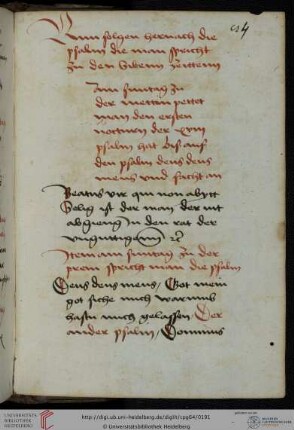 114
Nunn folgen hernach die
psalm die man spricht
zu den Siben zeittenn
Am suntag zu
der metten pettet
man den ersten
nocturn der xviij
psalm hat bis auf
den psalm deus deus
meus vnd facht an
Beatus vir qui non abyt
Selig ist der man der nit
abgieng in den rat der
vngutigenn etc
Item am suntag zu der
prem spricht man die psalm
Deus deus meus / Got mein
got siche mich warumb
hastu mich gelassen / Der
ander psalm / Dominus
UNIVERSITÄTS-
BIBLIOTHEK
HEIDELBERG
http://digi.ub.uni-heidelberg.de/diglit/cpg04/0191
© Universitätsbibliothek Heidelberg